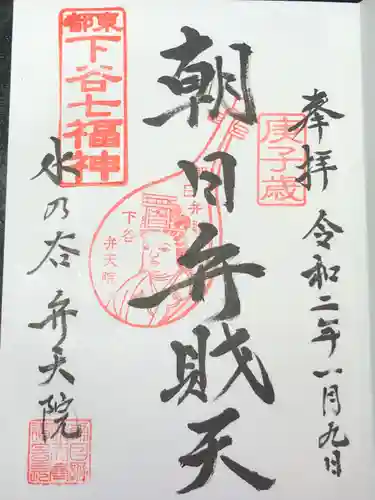 奉拝 令和二年一月九日
庚子歳
朝日弁財天
朝日弁
下谷
弁天院
東都
下谷七福神
水の谷 弁天院